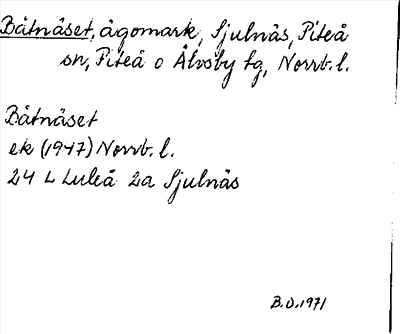 Båtnäset, ägomark, Sjulnäs, Piteå
sn, Piteå o Älvsby tg, Norrb. l.
Båtnäset
ek (1947) Norrb. l.
24 L Luleå 2a Sjulnäs
B.O. 1971